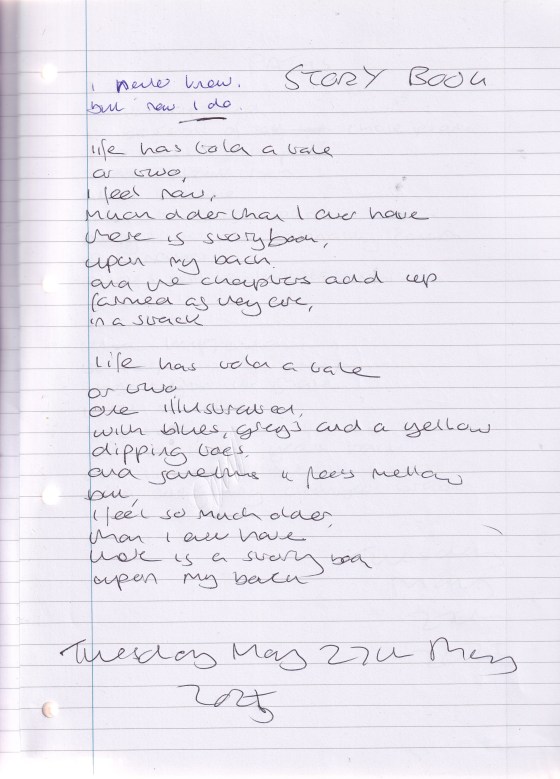 STORY BOOK
I never knew.
but now I do.
life has told a tale
or two,
I feel now,
much older than I ever have
there is storybook,
upon my back.
and the chapters add up
formed as they are,
in a stack
Life has told a tale
or two
one illustrated,
with blues, greys and a yellow
dipping toes.
and sometime it feels mellow
but,
I feel so much older,
than I ever have
there is a story book
upon my back
Tuesday May 27th May
2025